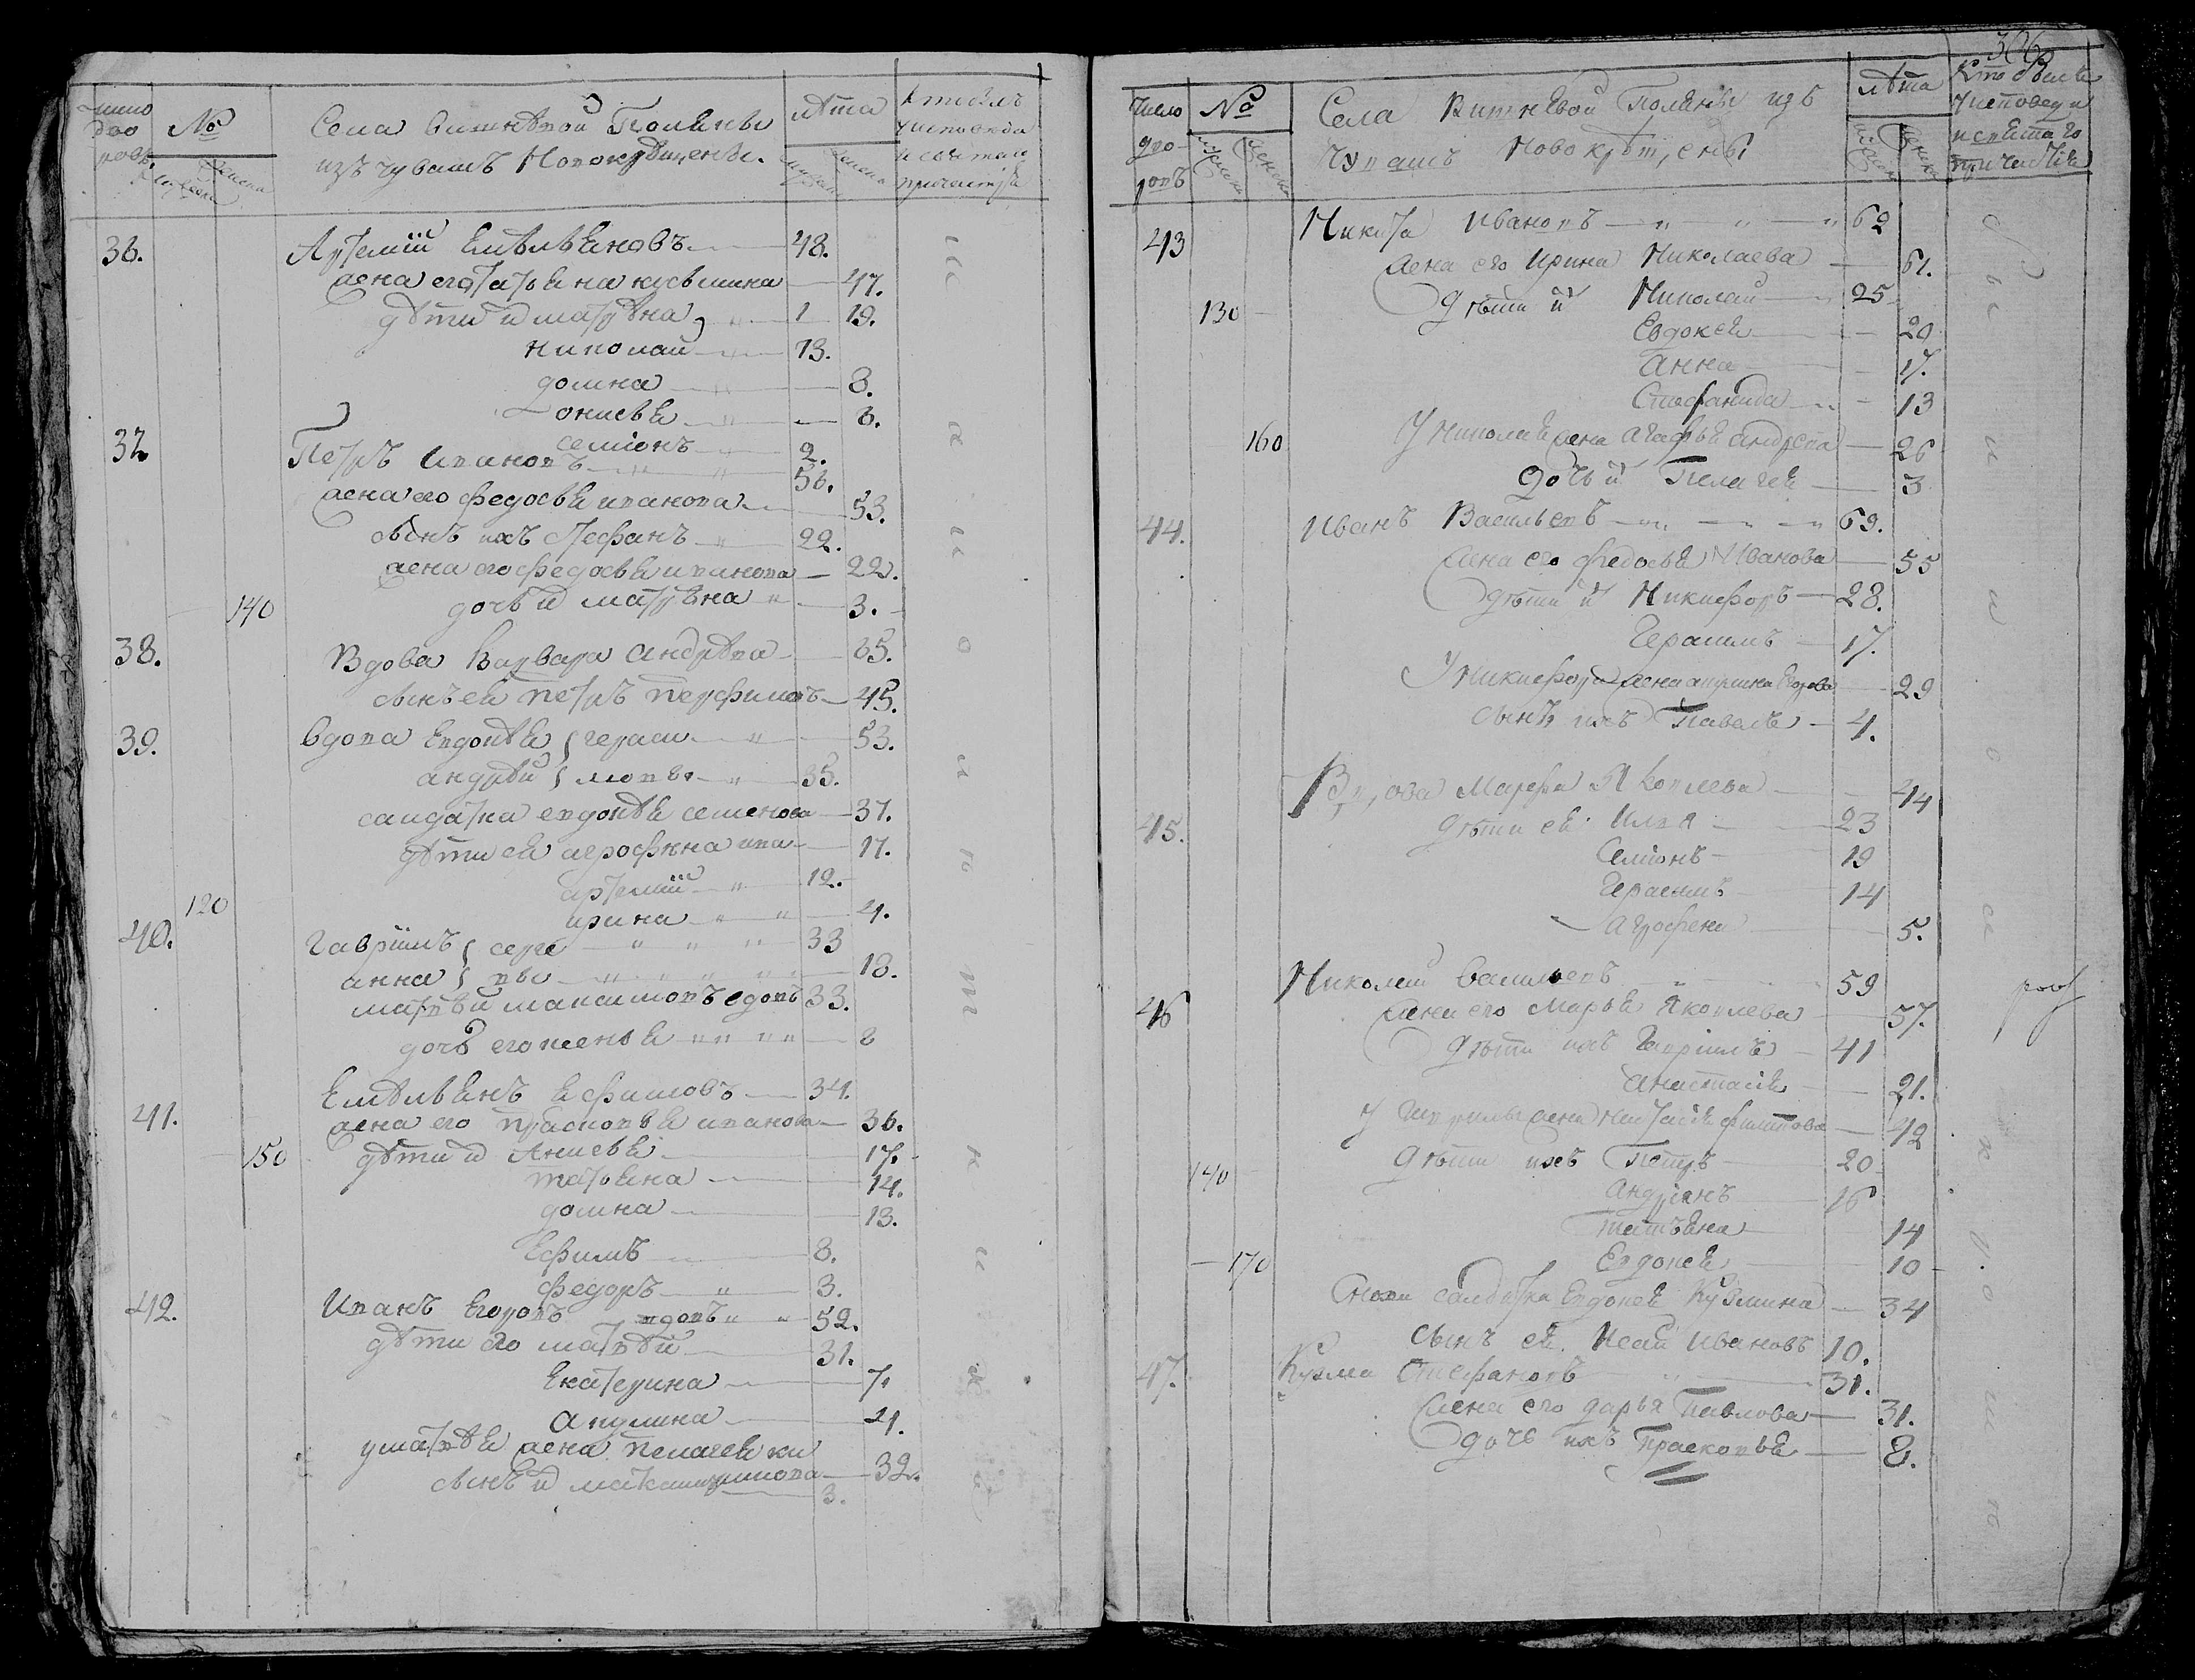 число дво ровъ
№
мужеска женска
Села Витневой Поляны
изъ чувашъ Новокрещены.
лѣта
мужеска женска
Кто былъ у исповѣди и святаго причастія
36. Артемїй Емѣльяновъ 48.
жена его татьяна кусьмина 47.
дѣти и матрѣна 19.
николай 13.
домна 8.
онисья 6.
семіонъ 2.
37 Петръ Ивановъ 56.
жена его федосья иванова 53.
сынъ ихъ Стефанъ 22.
жена его федосья иванова 22.
140 дочь и матрѣна 3.
38. Вдова Варвара андрѣва 85.
сынъ ея петръ перфиловъ 45.
39. вдова евдокѣя гераси 53.
андрѣй мовы 35.
салдатка евдокѣя семенова 37.
дѣти ея агрофѣна ива 17.
артемїй 12.
120 ирина 4.
40. гаврїилъ серге 33
анна евы 18.
матвѣй максимовъ вдовъ 33.
дочь его ксенья 8
41. Емѣльянъ Ефимовъ 34.
жена его прасковья иванова 36.
150 дѣти и Анисья 17.
татьяна 14.
домна 13.
Ефимъ 8.
федоръ 3.
42. Иванъ Егоровъ вдовъ 52.
дѣти его матвѣй 31.
Екатерина 7.
акулина 4.
у матвѣя жена пелагея ки
рилова 32.
сынъ и максимъ 3.
306
Число дво ровъ
№
мужска женска
Села Витневой Поляны изъ
Чувашъ Новокрещены
лѣта
мужска женска
Кто былъ у исповеди и святаго причастія
43 Никита Ивановъ 62
жена его Ирина Николаева 61.
130 Дѣти и Николай 25
Евдокея 20
Анна 17.
Стефанида 13
160 У Николая жена Агафья Андрева 26
Дочь и Пелагея 3
44. Иванъ Васильевъ 69.
жена его Федосья Иванова 55
Дѣти и Никифоръ 28.
Герасимъ 17.
У Никифора жена акулина Егорова 29
сынъ ихъ Павелъ 4.
45. Вдова Марфа Яковлева 44
Дѣти ея Илья 23
Семіонъ 19
Герасимъ 14
Агрофена 5.
46 Николай Васильевъ 59
жена его Марья Яковлева 57.
Дѣти ихъ Гаврилъ 41
Анастасія 21.
У Гаврилы жена Настасія Филипова 42
140 Дѣти ихъ Петръ 20
Андріянъ 16
Татьяна 14
170 Евдокея 10
Сноха салдатка Евдокея Кузмина 34
Сынъ ея Исай Ивановъ 10.
47. Кузма Стефановъ 31.
жена его дарья Павлова 31.
Дочь ихъ Прасковья 8.